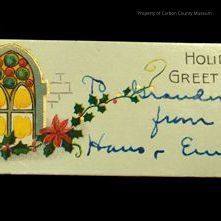 Property of Carbon County Museum
HOLI
GREET
To Grandm
from
Hans - Em